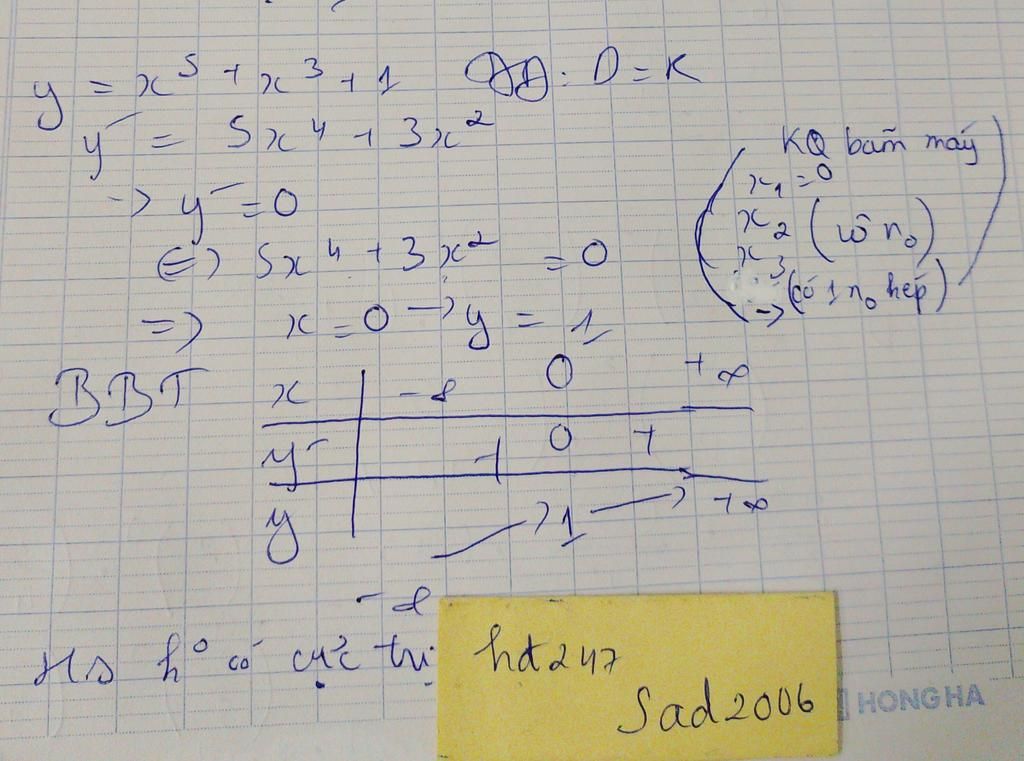 y = x⁵ + x³ + 1 TXĐ: D = R
y' = 5x⁴ + 3x²
-> y' = 0
<=> 5x⁴ + 3x² = 0
=> x = 0 -> y = 1
( KQ bấm máy
x₁ = 0
x₂ (vô n₀)
x₃
-> (có 1 n₀ kép) )
BBT
x | -∞ 0 +∞
y' | + 0 +
y | -∞ -> 1 -> +∞
Hs k° có cực trị
hd247
Sad2006
HONG HA